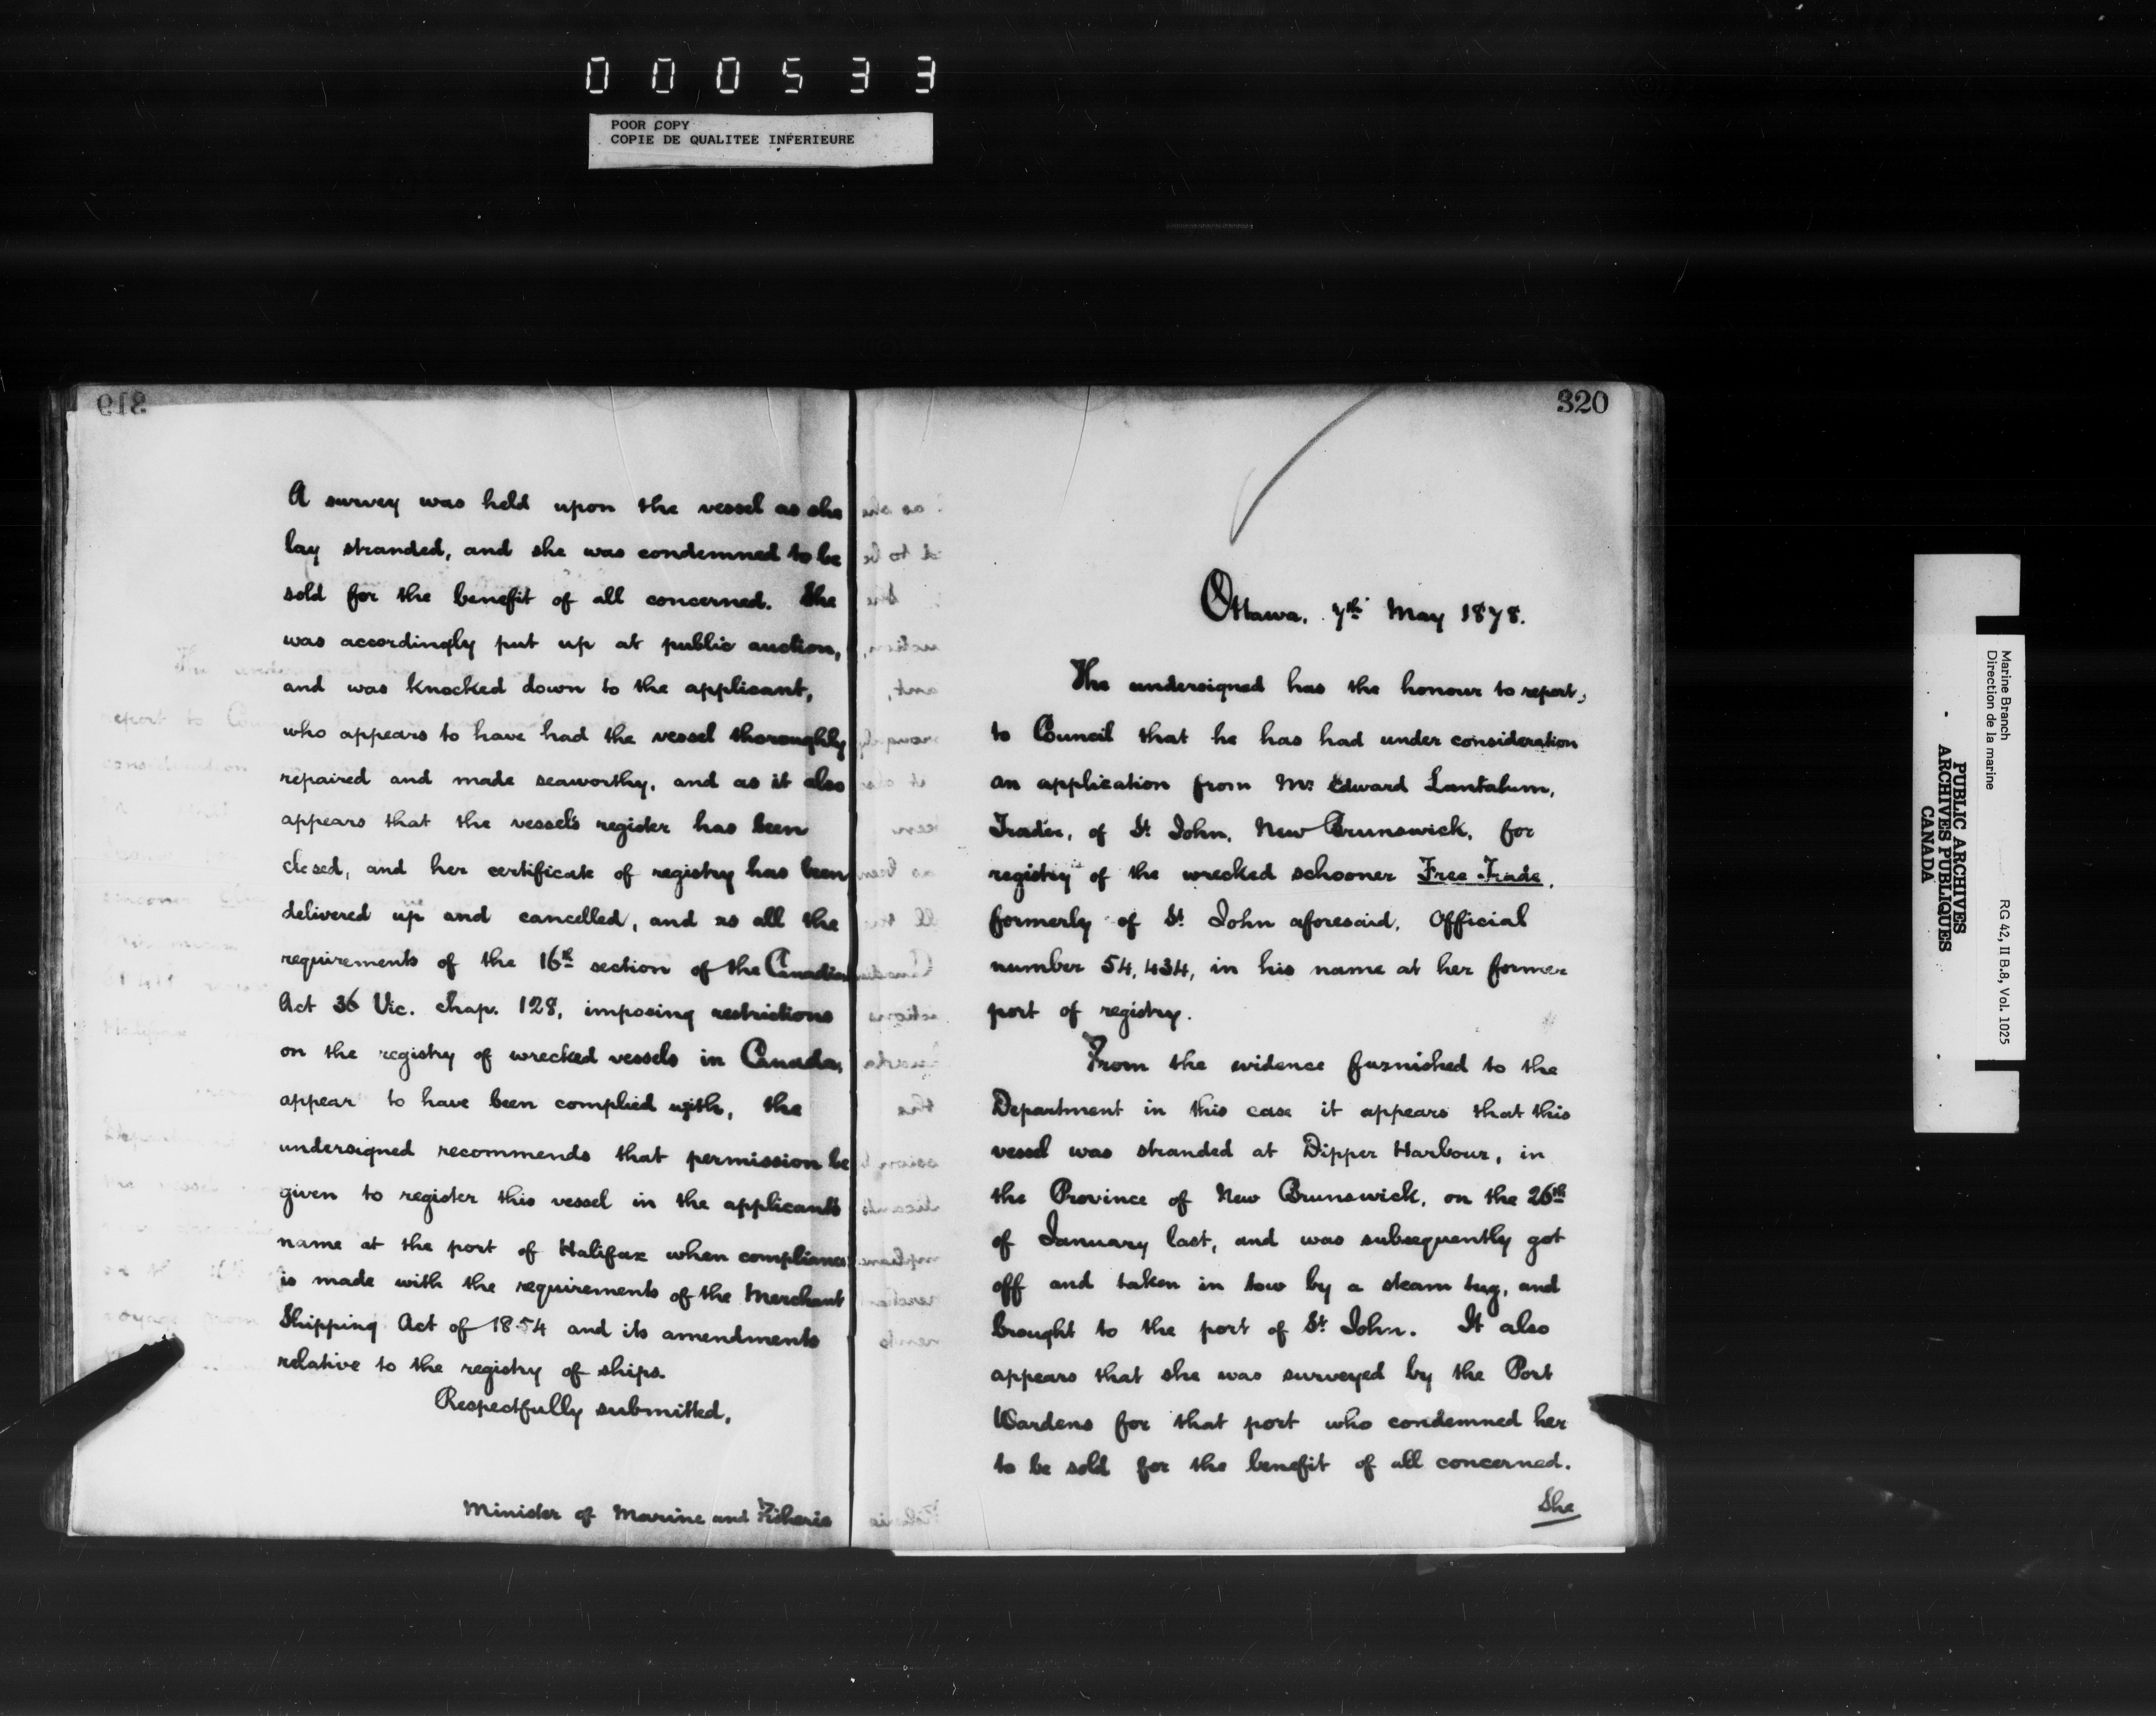 000533
POOR COPY
COPIE DE QUALITEE INFERIEURE
319
A survey was held upon the vessel as she
lay stranded, and she was condemned to be
sold for the benefit of all concerned. She
was accordingly put up at public auction,
and was knocked down to the applicant,
who appears to have had the vessel thoroughly
repaired and made seaworthy, and as it also
appears that the vessel's register has been
closed, and her certificate of registry has been
delivered up and cancelled, and as all the
requirements of the 16th section of the Canadian
Act 36 Vic. chap. 128, imposing restrictions
on the registry of wrecked vessels in Canada,
appear to have been complied with, the
undersigned recommends that permission be
given to register this vessel in the applicant's
name at the port of Halifax when compliance
is made with the requirements of the Merchant
Shipping Act of 1854 and its amendments
relative to the registry of ships.
Respectfully submitted,
Minister of Marine and Fisheries
320
Ottawa, 7th May 1878.
The undersigned has the honour to report,
to Council that he has had under consideration
an application from Mr. Edward Lantalum,
Trader, of St John, New Brunswick, for
registry of the wrecked schooner Free Trade,
formerly of St John aforesaid, Official
number 54,434, in his name at her former
port of registry.
From the evidence furnished to the
Department in this case it appears that this
vessel was stranded at Dipper Harbour, in
the Province of New Brunswick, on the 26th
of January last, and was subsequently got
off and taken in tow by a steam tug, and
brought to the port of St John. It also
appears that she was surveyed by the Port
Wardens for that port who condemned her
to be sold for the benefit of all concerned.
She
Marine Branch
Direction de la marine
RG 42, II B.8, Vol. 1025
PUBLIC ARCHIVES
ARCHIVES PUBLIQUES
CANADA